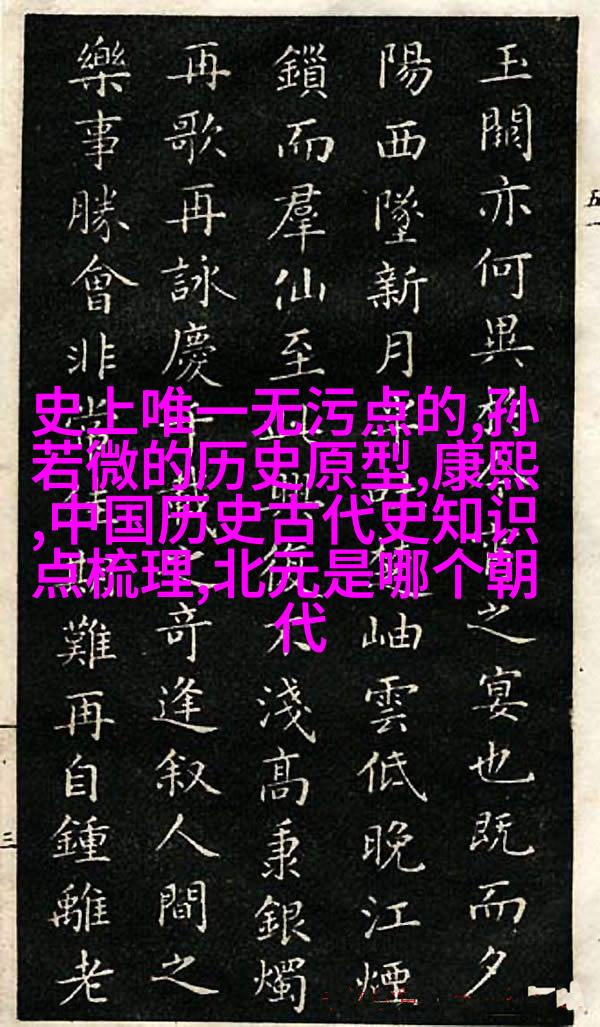 玉闕亦何異今之宴也既而夕
陽西墜新月岫雲低晚江煙
鎖而羣仙至此興復不淺高秉銀燭
再歌再詠慶千載之奇逢叙人間之
樂事勝會非常佳期難再自鍾離老
史上唯一无污点的,孙
若微的历史原型,康熙
,中国历史古代史知识
点梳理,北元是哪个朝
代
三